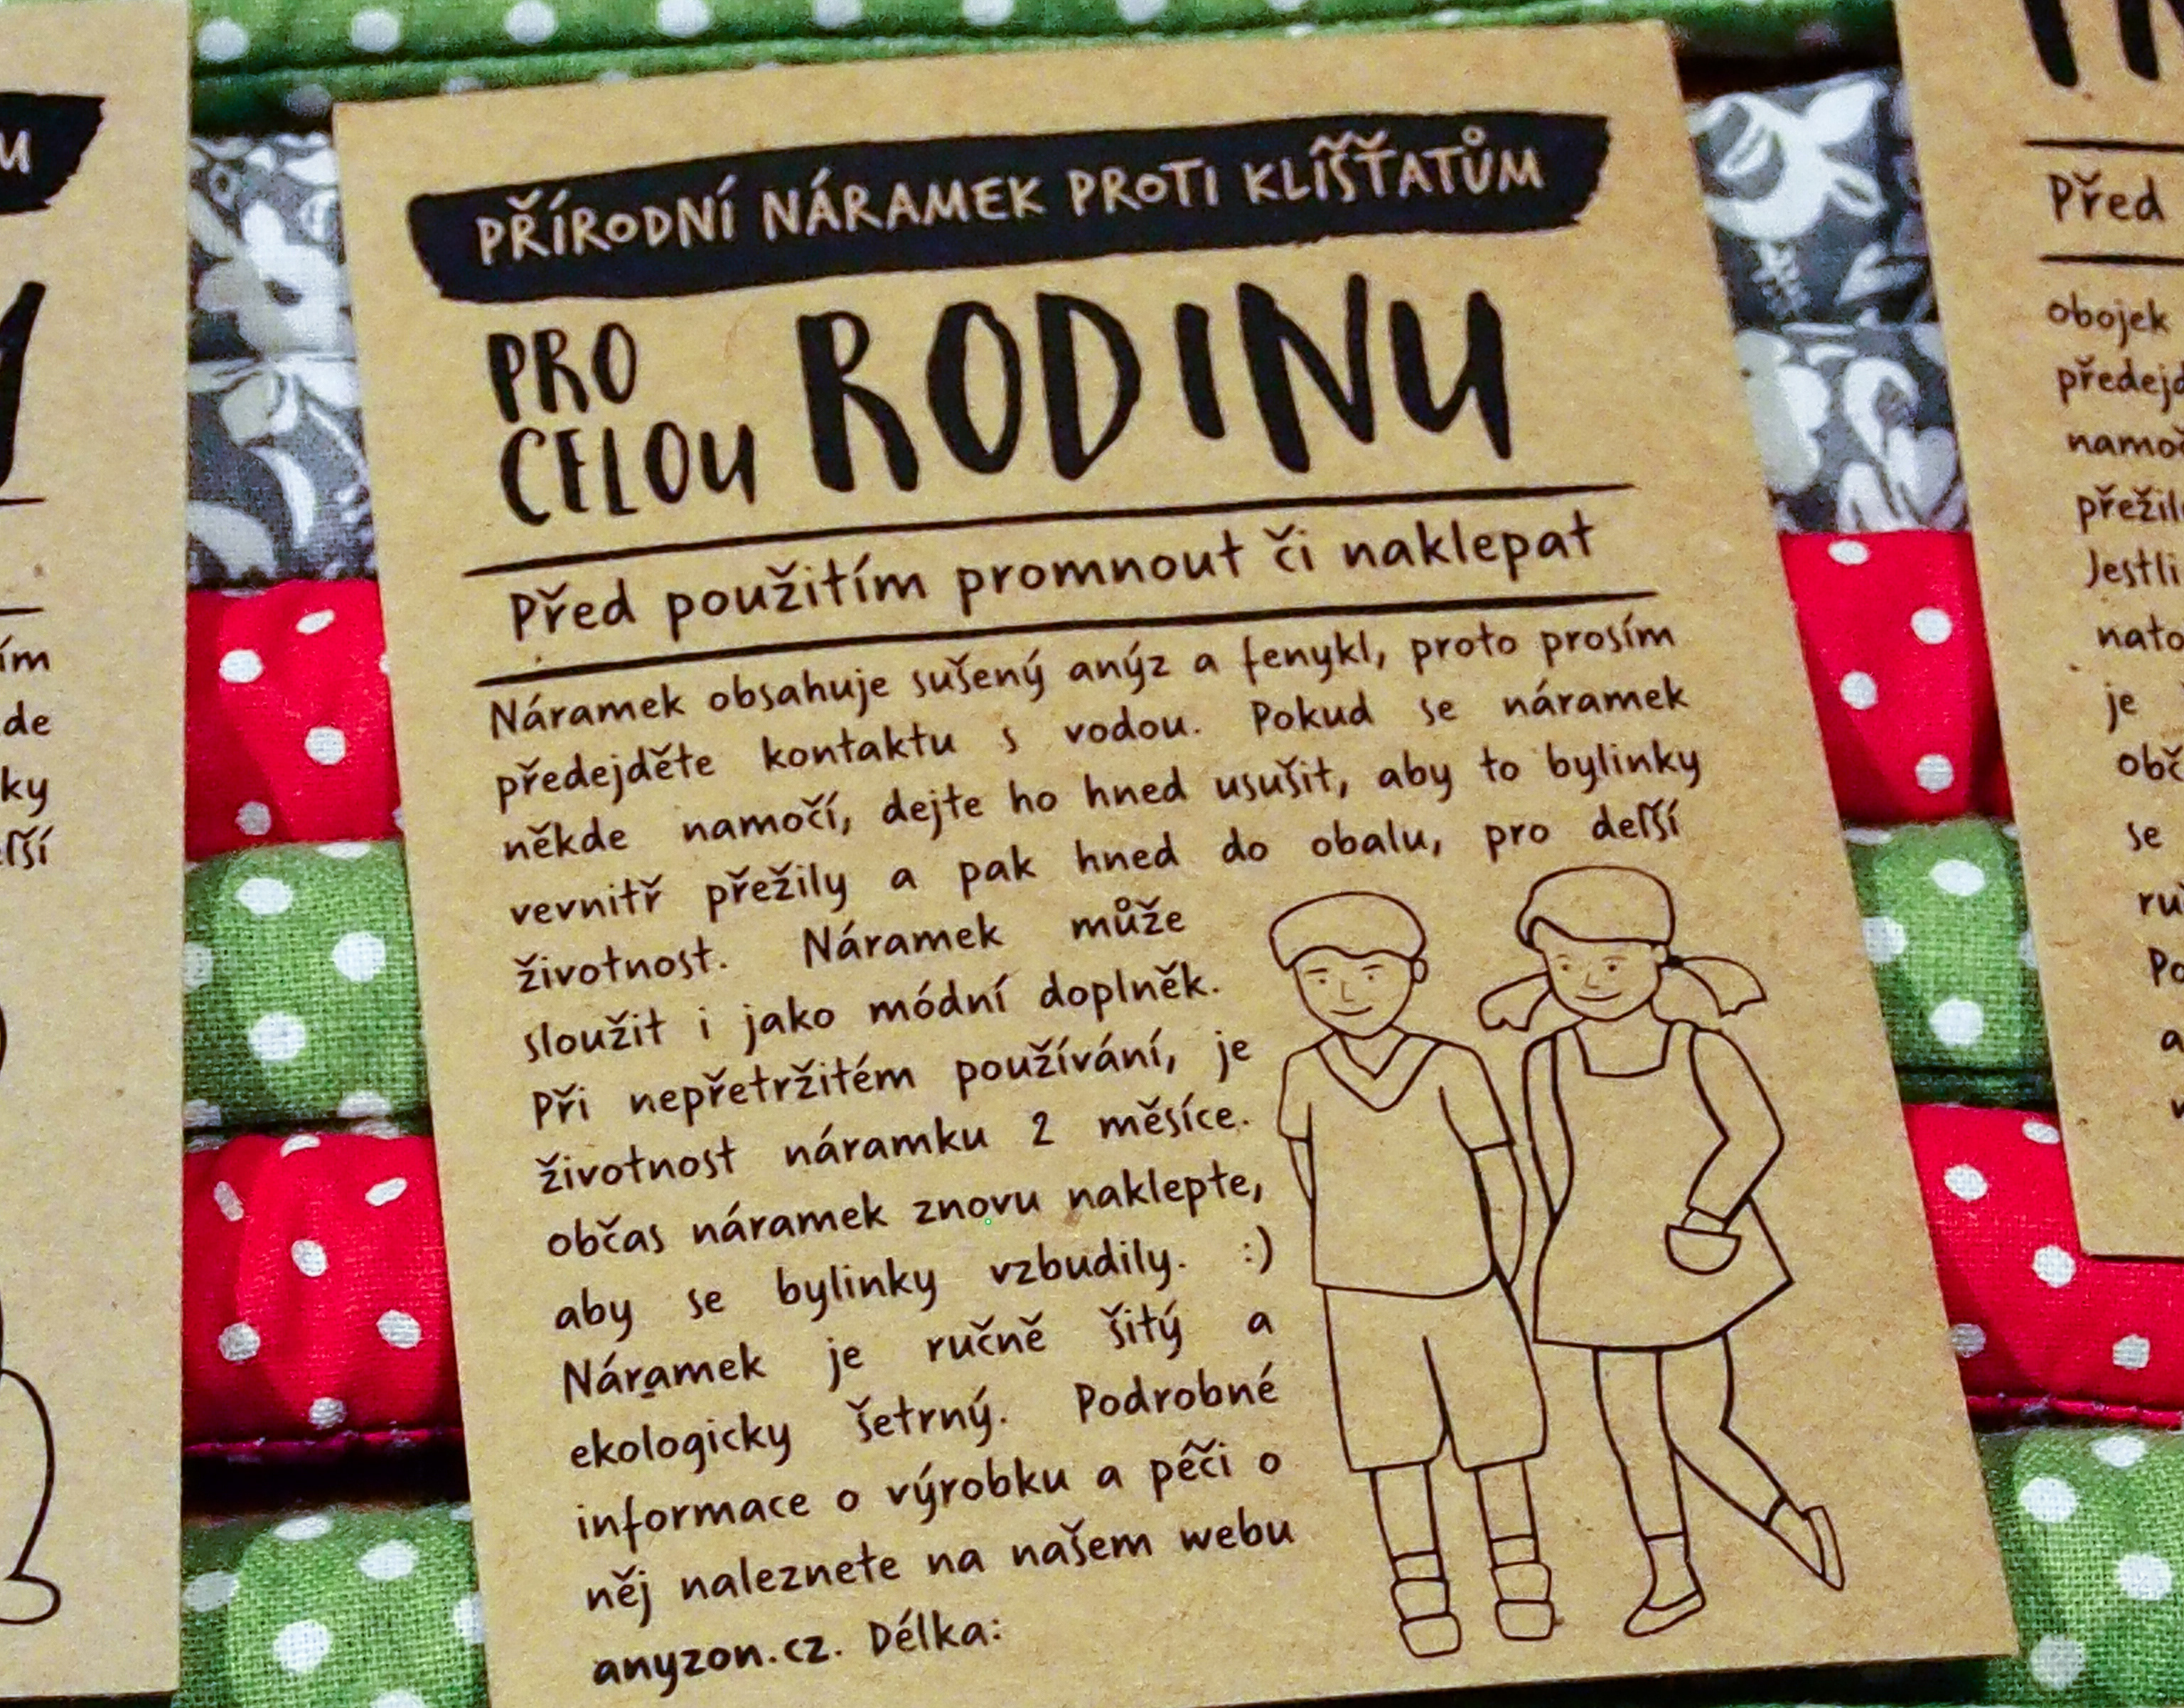 PŘÍRODNÍ NÁRAMEK PROTI KLÍŠŤATŮM
PRO CELOU RODINU
Před použitím promnout či naklepat
Náramek obsahuje sušený anýz a fenykl, proto prosím
předejděte kontaktu s vodou. Pokud se náramek
někde namočí, dejte ho hned usušit, aby to bylinky
vevnitř přežily a pak hned do obalu, pro deľší
životnost. Náramek může
sloužit i jako módní doplněk.
Při nepřetržitém používání, je
životnost náramku 2 měsíce.
občas náramek znovu naklepte,
aby se bylinky vzbudily. :)
Náramek je ručně šitý a
ekologicky šetrný. Podrobné
informace o výrobku a péči o
něj naleznete na našem webu
anyzon.cz. Délka:
Před
obojek
Jestli
je
se